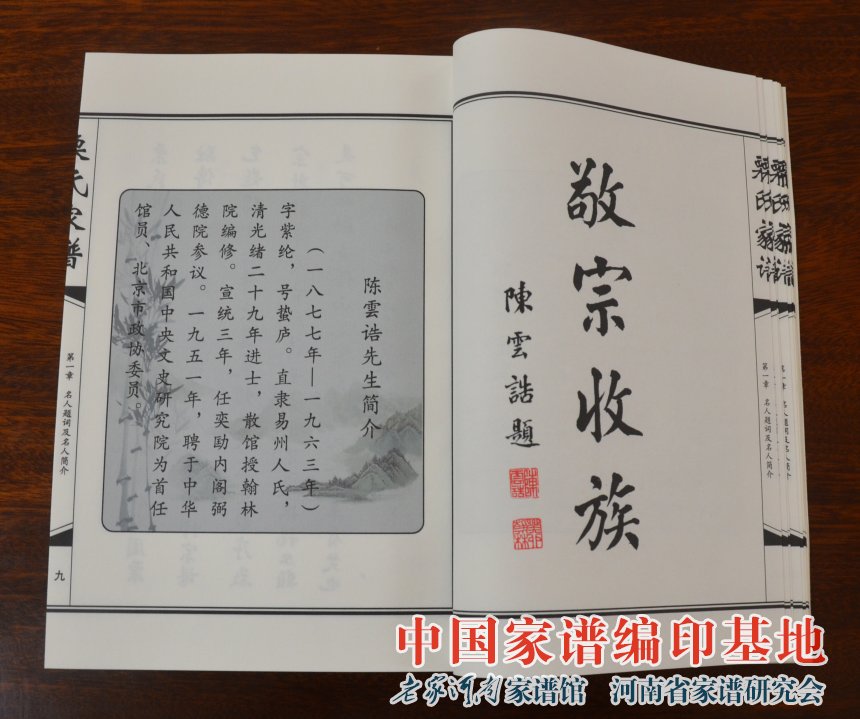 氏家谱
第一章 名人题词及名人简介
敬宗收族
陳雲誥題
陈雲诰先生简介
（一八七七年—一九六三年）
字紫纶，号蛰庐。直隶易州人氏，
清光绪二十九年进士，散馆授翰林
院编修。宣统三年，任奕劻内阁弼
德院参议。一九五一年，聘于中华
人民共和国中央文史研究院为首任
馆员、北京市政协委员。
氏家谱
第一章 名人题词及名人简介
九
中国家谱编印基地
老家河南家谱馆 河南省家谱研究会